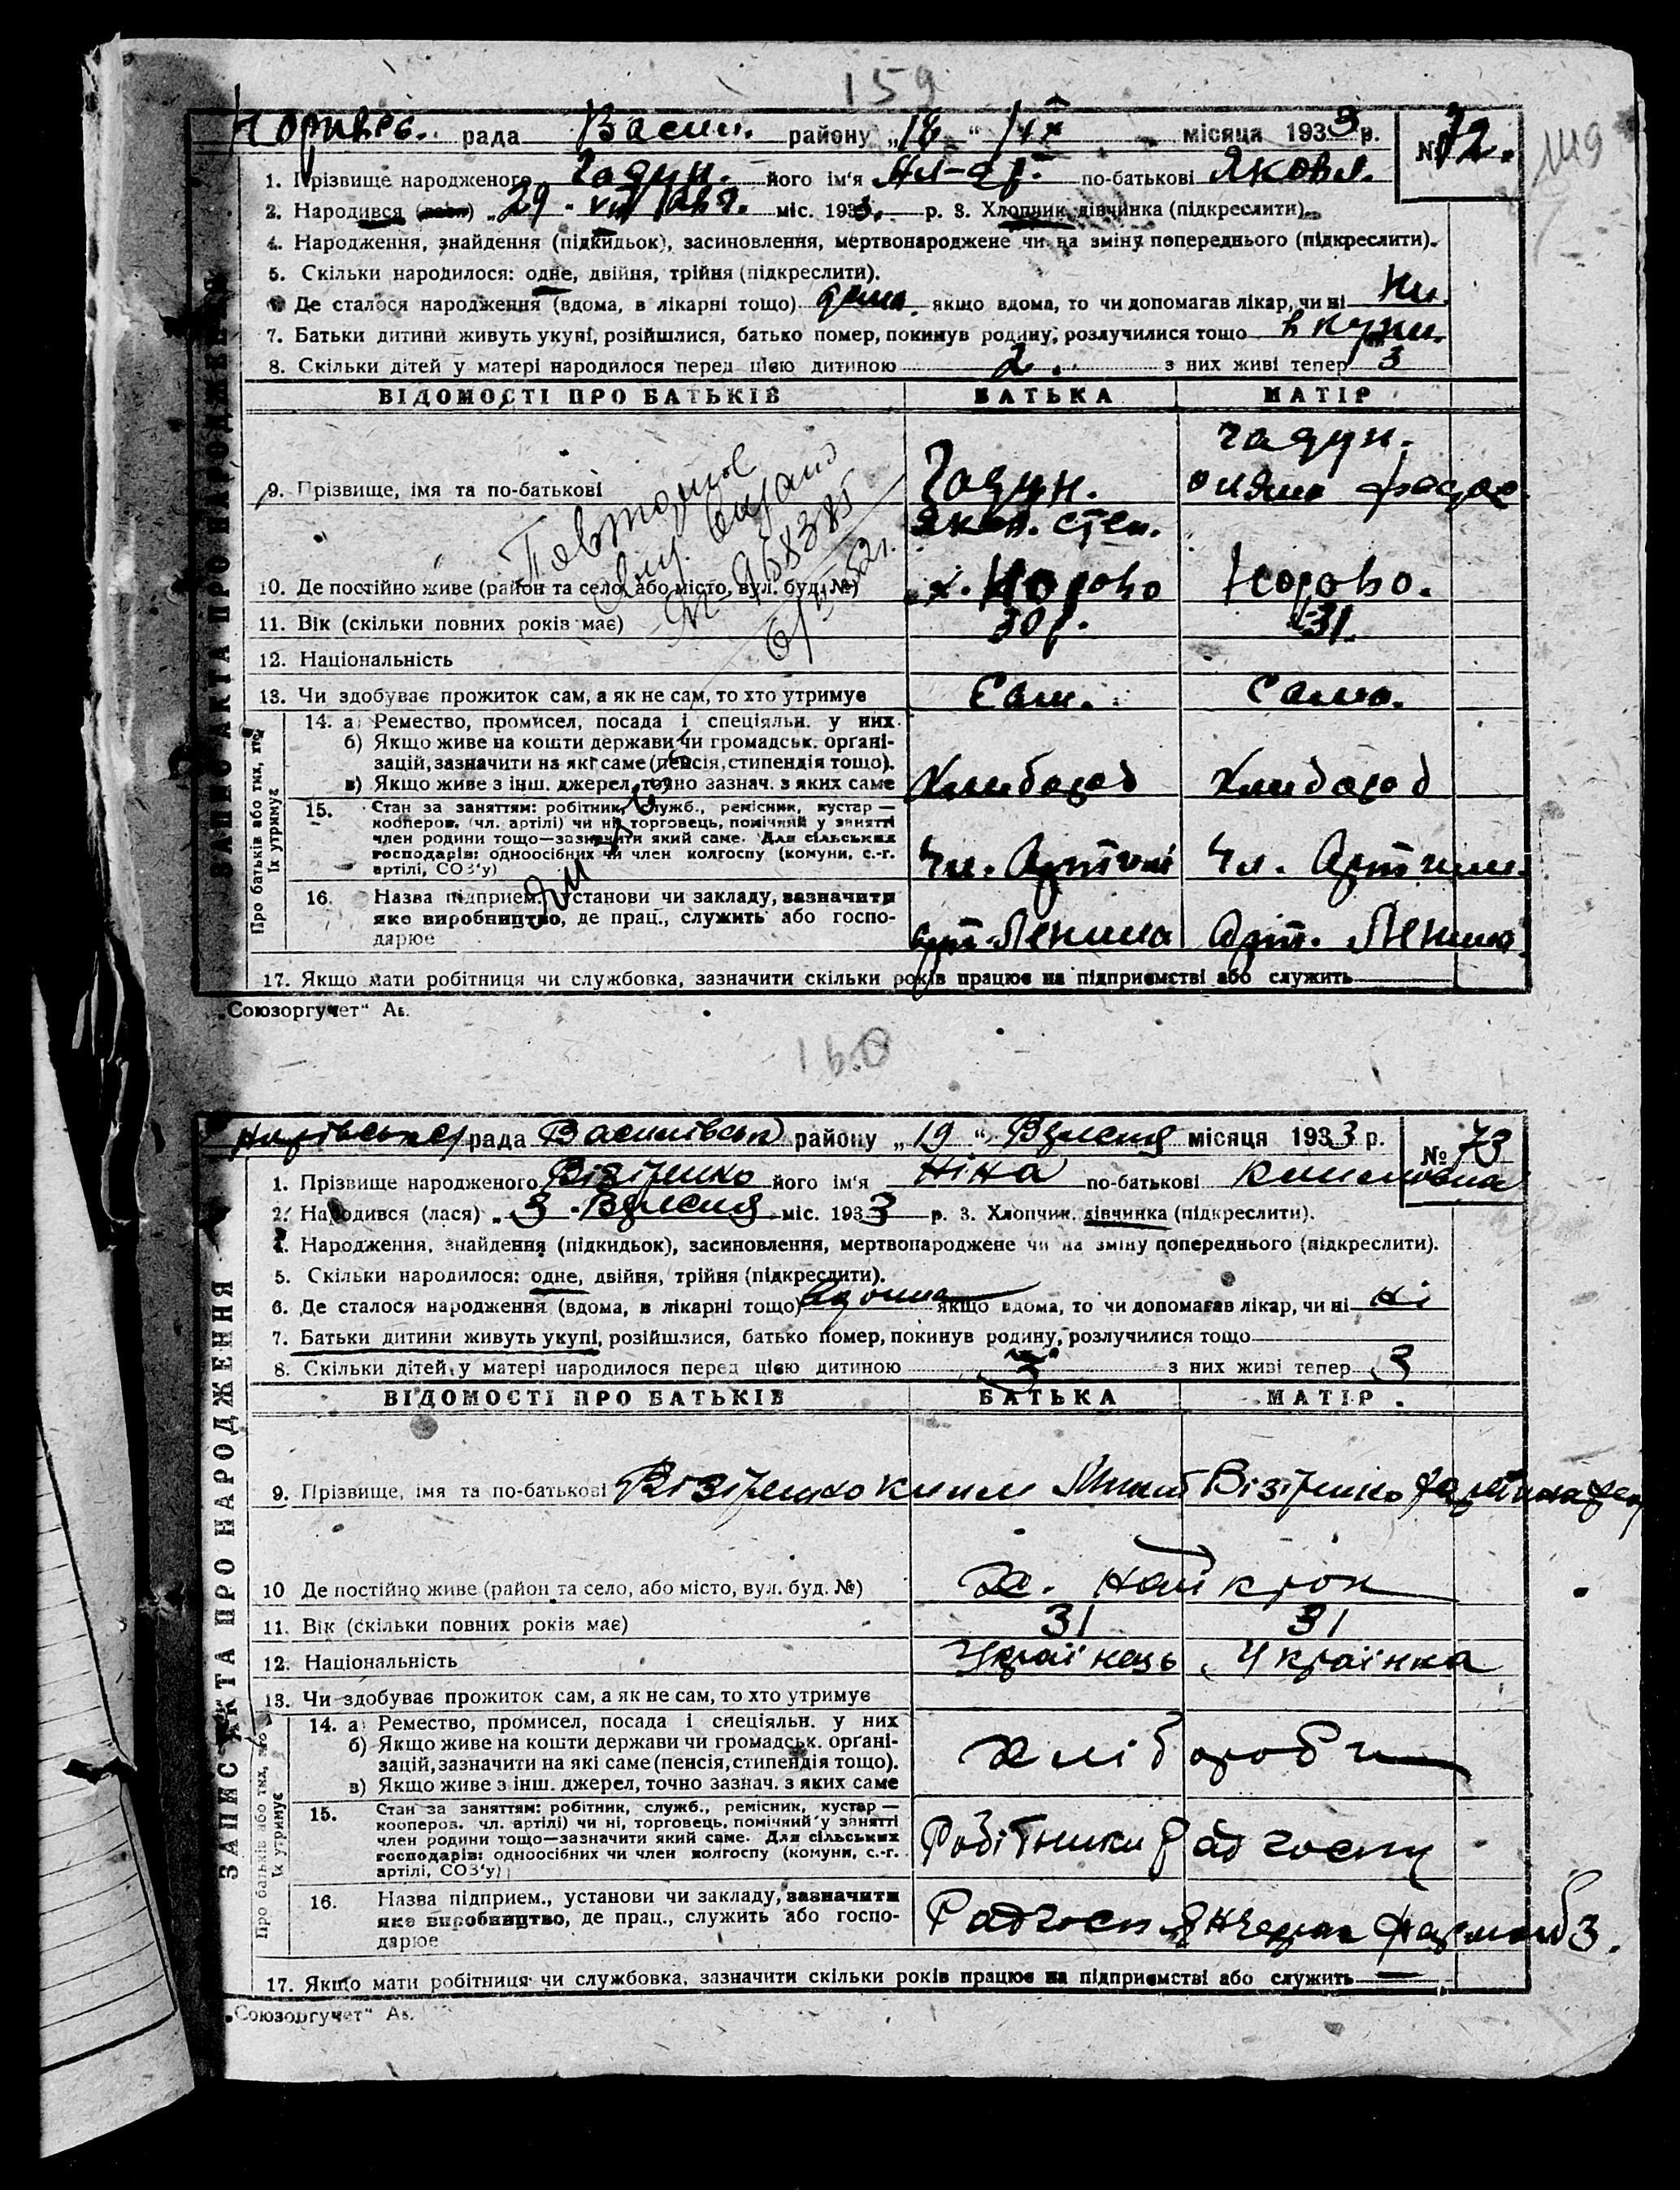 159
149
рада Васил. району „18“ IX місяця 1933 р.
№ 72.
1. Прізвище народженого Чадун. його ім'я по-батькові Яковл.
2. Народився (лася) „29 VIII міс. 193 р. 3. Хлопчик, дівчинка (підкреслити).
4. Народження, знайдення (підкидьок), засиновлення, мертвонароджене чи на зміну попереднього (підкреслити).
5. Скільки народилося: одне, двійня, трійня (підкреслити).
6. Де сталося народження (вдома, в лікарні тощо) дома якщо вдома, то чи допомагав лікар, чи ні Ни.
7. Батьки дитини живуть укупі, розійшлися, батько помер, покинув родину, розлучилися тощо вкупи.
8. Скільки дітей у матері народилося перед цією дитиною 2. з них живі тепер 3
ВІДОМОСТІ ПРО БАТЬКІВ БАТЬКА МАТІР
9. Прізвище, імя та по-батькові Чадун. Яков. Степ. Чадун.
Повторное
выдано
968385
10. Де постійно живе (район та село, або місто, вул. буд. №)
11. Вік (скільки повних років має) 30 р. 31.
12. Національність
13. Чи здобуває прожиток сам, а як не сам, то хто утримує Сам. Сама.
Про батьків або тих, хто їх утримує
14. а) Ремество, промисел, посада і спеціяльн. у них
б) Якщо живе на кошти держави чи громадськ. органі-
зацій, зазначити на які саме (пенсія, стипендія тощо).
в) Якщо живе з інш. джерел, точно зазнач. з яких саме Хлибороб Хлибороб
15. Стан за заняттям: робітник, служб., ремісник, кустар —
кооперов. (чл. артілі) чи ні, торговець, помічний у занятті
член родини тощо—зазначити який саме. Для сільських
господарів: одноосібних чи член колгоспу (комуни, с.-г.
артілі, СОЗ'у) Чл. Артилі Чл. Артили.
16. Назва підприєм., установи чи закладу, зазначити
яке виробництво, де прац., служить або госпо-
дарює Арт. Ленина Арт. Ленина
17. Якщо мати робітниця чи службовка, зазначити скільки років працює на підприємстві або служить
ЗАПИС АКТА ПРО НАРОДЖЕННЯ
„Союзоргучет“ Ав.
160
рада Василівськ району „19“ Вресня місяця 1933 р.
№ 73
1. Прізвище народженого Візіренко його ім'я Ніна по-батькові Климовна
2. Народився (лася) „3 Вресня міс. 1933 р. 3. Хлопчик, дівчинка (підкреслити).
4. Народження, знайдення (підкидьок), засиновлення, мертвонароджене чи на зміну попереднього (підкреслити).
5. Скільки народилося: одне, двійня, трійня (підкреслити).
6. Де сталося народження (вдома, в лікарні тощо) вдома якщо вдома, то чи допомагав лікар, чи ні ні
7. Батьки дитини живуть укупі, розійшлися, батько помер, покинув родину, розлучилися тощо
8. Скільки дітей у матері народилося перед цією дитиною 3 з них живі тепер 3
ВІДОМОСТІ ПРО БАТЬКІВ БАТЬКА МАТІР
9. Прізвище, імя та по-батькові Візіренко Клим Візіренко
10 Де постійно живе (район та село, або місто, вул. буд. №) х.
11. Вік (скільки повних років має) 31 31
12. Національність Українець Українка
13. Чи здобуває прожиток сам, а як не сам, то хто утримує
Про батьків або тих, хто їх утримує
14. а) Ремество, промисел, посада і спеціяльн. у них
б) Якщо живе на кошти держави чи громадськ. органі-
зацій, зазначити на які саме (пенсія, стипендія тощо).
в) Якщо живе з інш. джерел, точно зазнач. з яких саме Хлібороби
15. Стан за заняттям: робітник, служб., ремісник, кустар —
кооперов. чл. артілі) чи ні, торговець, помічний у занятті
член родини тощо—зазначити який саме. Для сільських
господарів: одноосібних чи член колгоспу (комуни, с.-г.
артілі, СОЗ'у) Робітники Радгоспу
16. Назва підприєм., установи чи закладу, зазначити
яке виробництво, де прац., служить або госпо-
дарює Радгосп 3.
17. Якщо мати робітниця чи службовка, зазначити скільки років працює на підприємстві або служить —
ЗАПИС АКТА ПРО НАРОДЖЕННЯ
„Союзоргучет“ Ав.